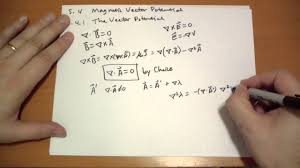 5.4 Magnetic Vector Potential
4.1. The Vector Potential
∇·B⃗=0 ∇×E⃗=0
B⃗=∇×A⃗ E⃗=-∇V
∇×B⃗=∇×(∇×A⃗)=μ₀J⃗=∇(∇·A⃗)-∇²A⃗
∇·A⃗=0 by Choice
A⃗' ∇·A⃗'≠0 A⃗=A⃗'+∇λ
∇²λ=-(∇·A⃗') ∇²